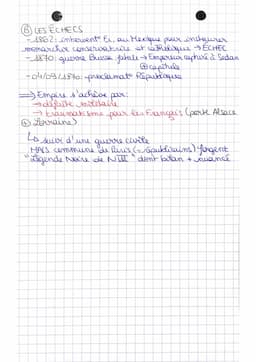 Ⓑ LES ÉCHECS
- 1862: intervient° Fr. au Mexique pour instaurer
monarchie conservatrice et catholique → ÉCHEC
- 1870: guerre Prusse fatale → Empereur capturé à Sedan
⊕ capitule
- 04/09/1870: proclamat° République
⇒ Empire s'achève par:
→ défaite militaire
→ traumatisme pour les Français (perte Alsace
⊕ Lorraine)
↳ suivi d'une guerre civile
MAIS commune de Paris (= républicains) forgent
"légende Noire de NIII" dont bilan + nuancé